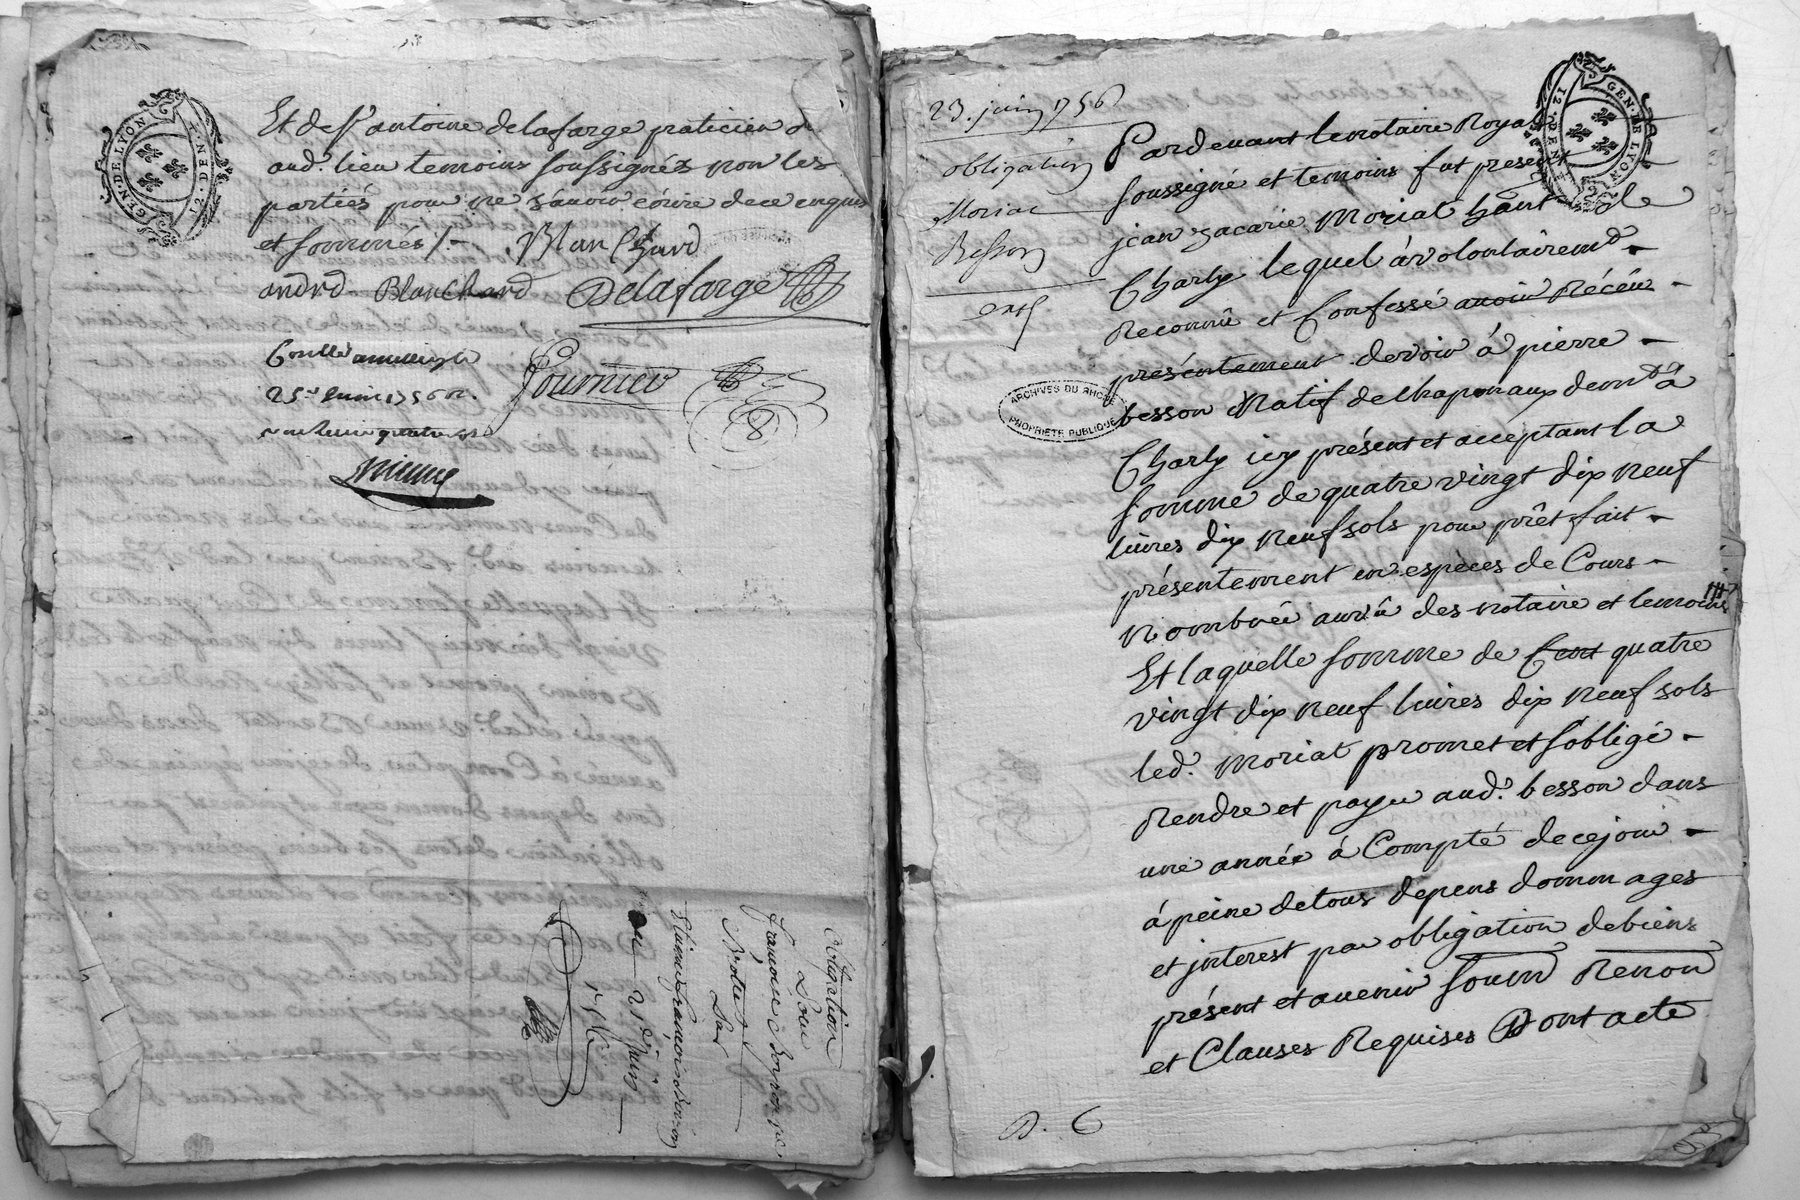 GEN·DE LYON
12·DEN·
Et de Sr antoine delafarge praticien d
aud. lieu temoins soussignéz non les
partiés pour ne sçavoir écrire de ce enquis
et sommés /.
Blanchard
andrd Blanchard Delafarge
Conllé amillery le
25e Juin 1756
Fournier
obligation
Pour
françoise
Par
du 21e Juin
1756
23. juin 1756
obligation
Moriat
Besson
GEN·DE LYON
12·DEN·
Pardevant le notaire Royal
soussigné et temoins fut present
jean zacarie Moriat hânt de
Charly lequel à volontâiremt
Reconnû et Confessé avoir Récéu
présentement devoir à pierre
besson Natif de Chaponaux demt à
Charly icy présent et accéptant la
somme de quatre vingt dix neuf
livres dix neuf sols pour prêt fait
présentement en espèces de Cours
Nombrée au vû des notaire et temoins
Et laquelle somme de Cent quatre
vingt dix neuf livres dix neuf sols
led. Moriat promet et s'oblige
Rendre et payer aud. besson dans
une année à Compté de ce jour
à peine de tous depens dommages
et jnterest par obligation de biens
présent et avenir soum Renon
et Clauses Requises Dont acte
ARCHIVES DU RHÔNE
PROPRIÉTÉ PUBLIQUE